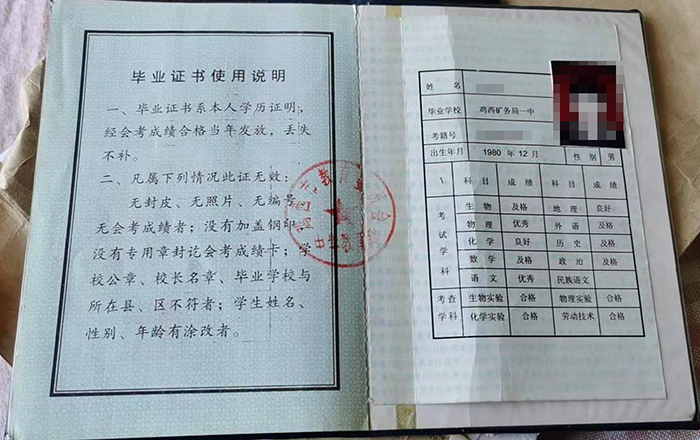 毕业证书使用说明
一、毕业证书系本人学历证明，
经会考成绩合格当年发放，丢失
不补。
二、凡属下列情况此证无效：
无封皮、无照片、无编号、
无会考成绩者；没有加盖钢印、
没有专用章封讫会考成绩卡；学
校公章、校长名章、毕业学校与
所在县、区不符者；学生姓名、
性别、年龄有涂改者。
姓 名
毕业学校 鸡西矿务局一中
考籍号
出生年月 1980 年 12 月 性 别 男
\ 科 目 成 绩 科 目 成 绩
考试学科
生 物 及格 地 理 良好
物 理 优秀 外 语 及格
化 学 良好 历 史 及格
数 学 及格 政 治 及格
语 文 优秀 民族语文
考查学科
生物实验 合格 物理实验 合格
化学实验 合格 劳动技术 合格